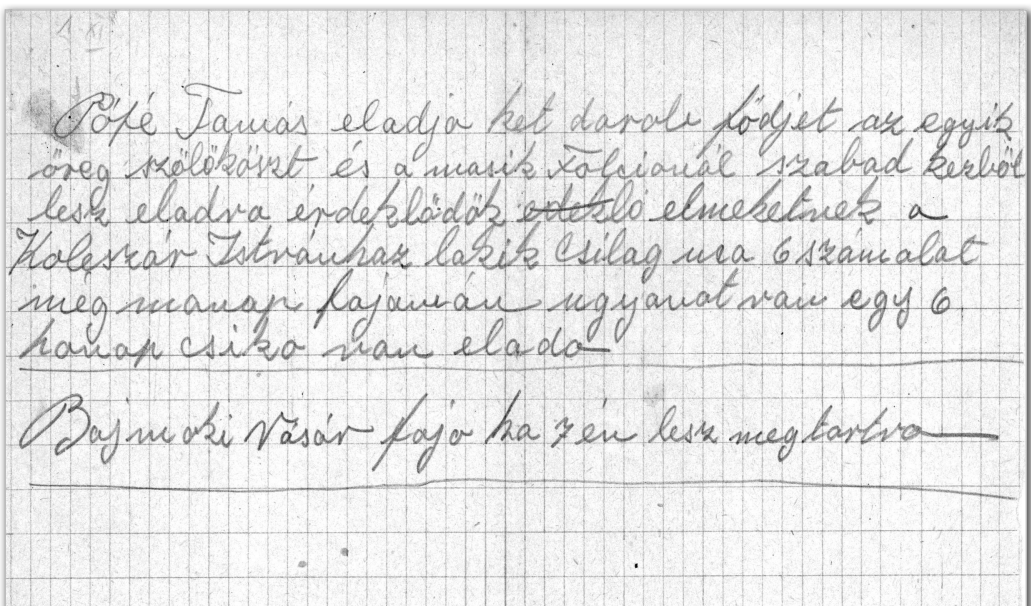 1 XI
Pópé Tamás eladja ket darab födjet az egyik
öreg szölököszt és a masik Fölcionál szabad kezböl
lesz eladva érdeklödök elmeketnek a
Koleszár Istvánhaz lakik Csilag uca 6 számalat
még manap fojamán ugyanot van egy 6
honap csiko van elado
Bajmoki Vásár fojo ho 7 én lesz megtartva